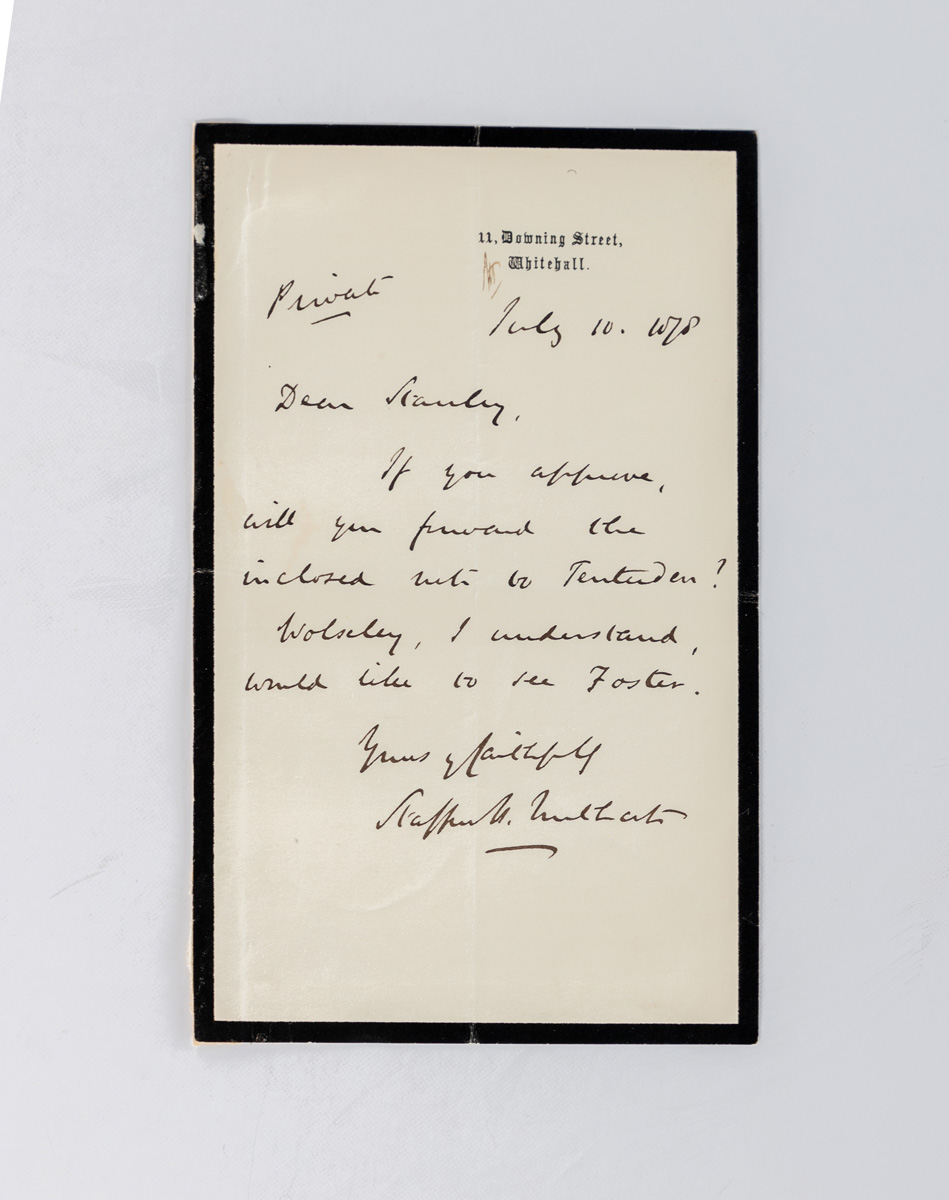 11, Downing Street,
Whitehall.
Private
July 10. 1878
Dear Stanley,
If you approve,
will you forward the
inclosed note to Tenterden?
Wolseley, I understand,
would like to see Foster.
Yours faithfully
Stafford H. Northcote